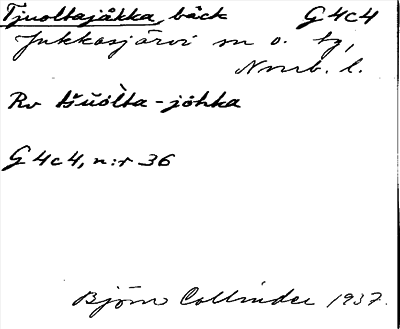 Tjuoltajåkka, bäck G 4c4
Jukkasjärvi sn o. tg,
Norrb. l.
Rv tšŭŏl̀ta-jòhka
G 4c4, n:r 36
Björn Collinder 1937.